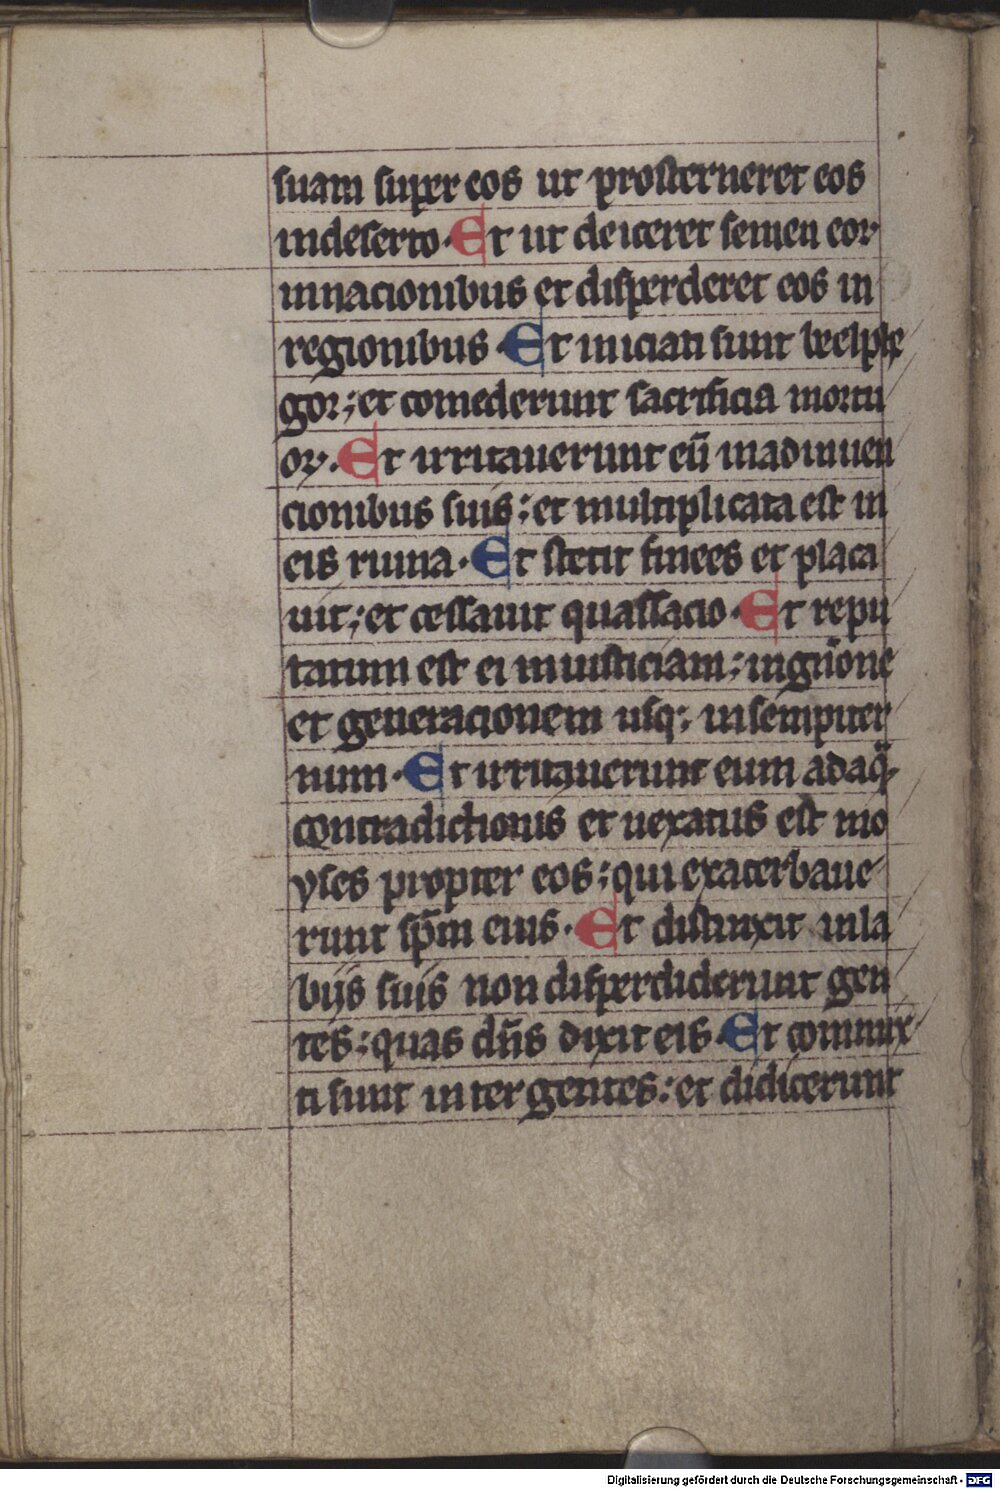 suam super eos ut prosterneret eos
indeserto · Et ut deiceret semen eoꝝ
innacionibus et disperderet eos in
regionibus · Et iniciati sunt beelphe
gor ; et comederunt sacrificia mortu
oꝝ · Et irritauerunt eū inadinuen
cionibus suis ; et multiplicata est in
eis ruina · Et stetit finees et placa
uit ; et cessauit quassacio · Et repu
tatum est ei iniusticiam ; ingn̄one
et generacionem usq; insempiter
num · Et irritauerunt eum adaq̄s
contradictionis et uexatus est mo
yses propter eos ; qui exacerbaue
runt sp̄m eius · Et distinxit inla
biis suis non disperdiderunt gen
tes ; quas dn̄s dixit eis · Et commix
ti sunt inter gentes ; et didicerunt
Digitalisierung gefördert durch die Deutsche Forschungsgemeinschaft - DFG